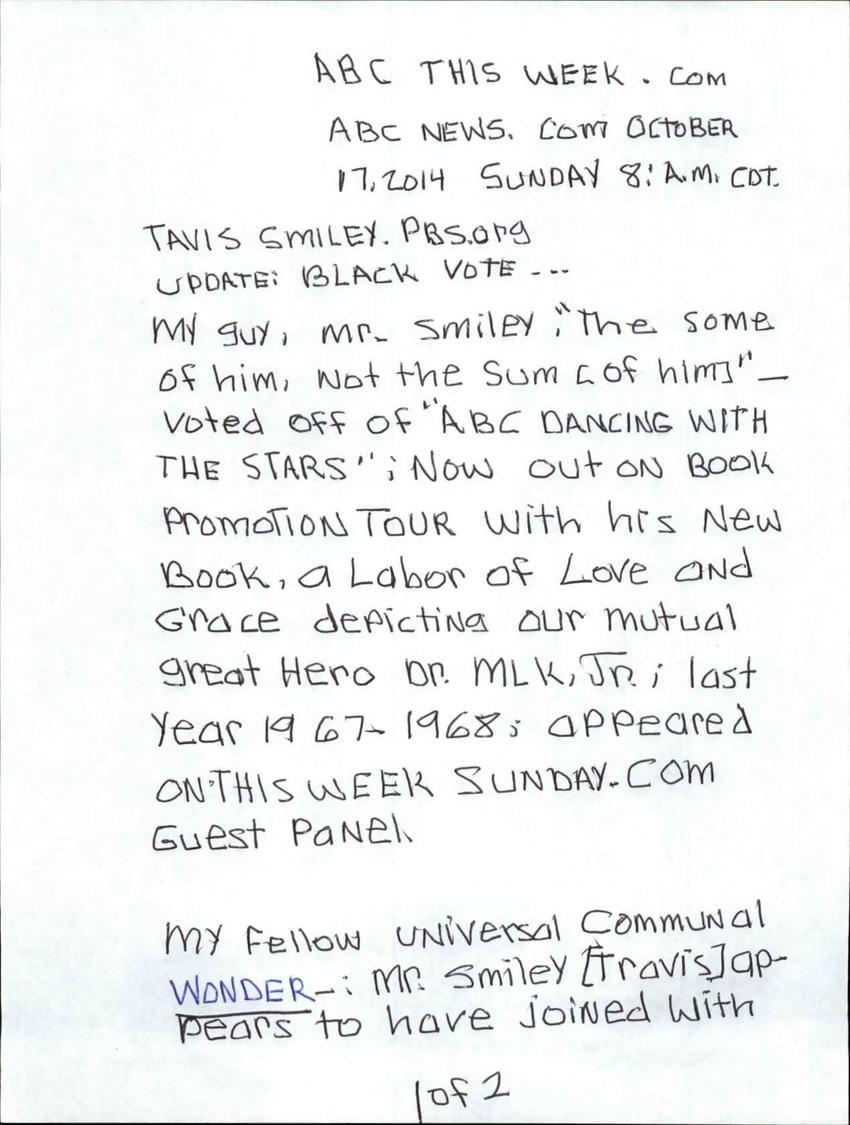 ABC THIS WEEK . COM
ABC NEWS. COM OCTOBER
17, 2014 SUNDAY 8: A.M. CDT.
TAVIS SMILEY. PBS.org
UPDATE: BLACK VOTE ---
My guy, Mr. Smiley, "The some
of him, Not the Sum [of him]" —
Voted off of "ABC DANCING WITH
THE STARS"; Now out on Book
Promotion TOUR with his New
Book, a Labor of Love and
Grace depicting our mutual
great Hero Dr. MLK, Jr.; last
Year 1967-1968; appeared
ON·THIS WEEK SUNDAY.COM
Guest Panel.
My Fellow Universal Communal
WONDER—: Mr. Smiley [Travis] ap-
pears to have joined with
1 of 2